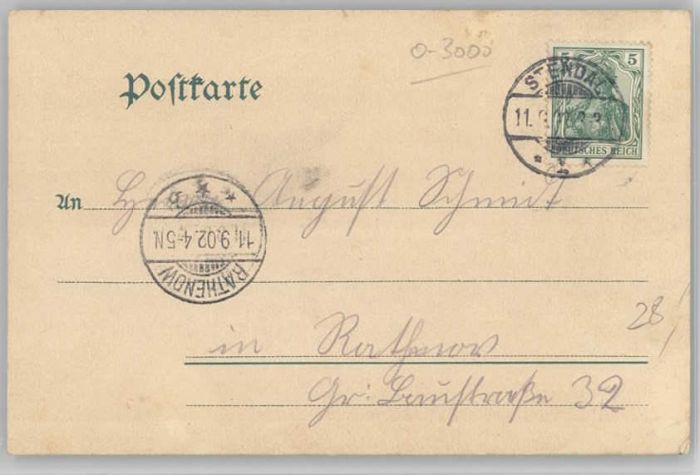 0-3000
Postkarte
5 5
DEUTSCHES REICH
STENDAL
11.9.02
An Herrn August Schmidt
RATHENOW
11.9.02.4-5N.
in Rathenow
28
Gr. Baustraße 32